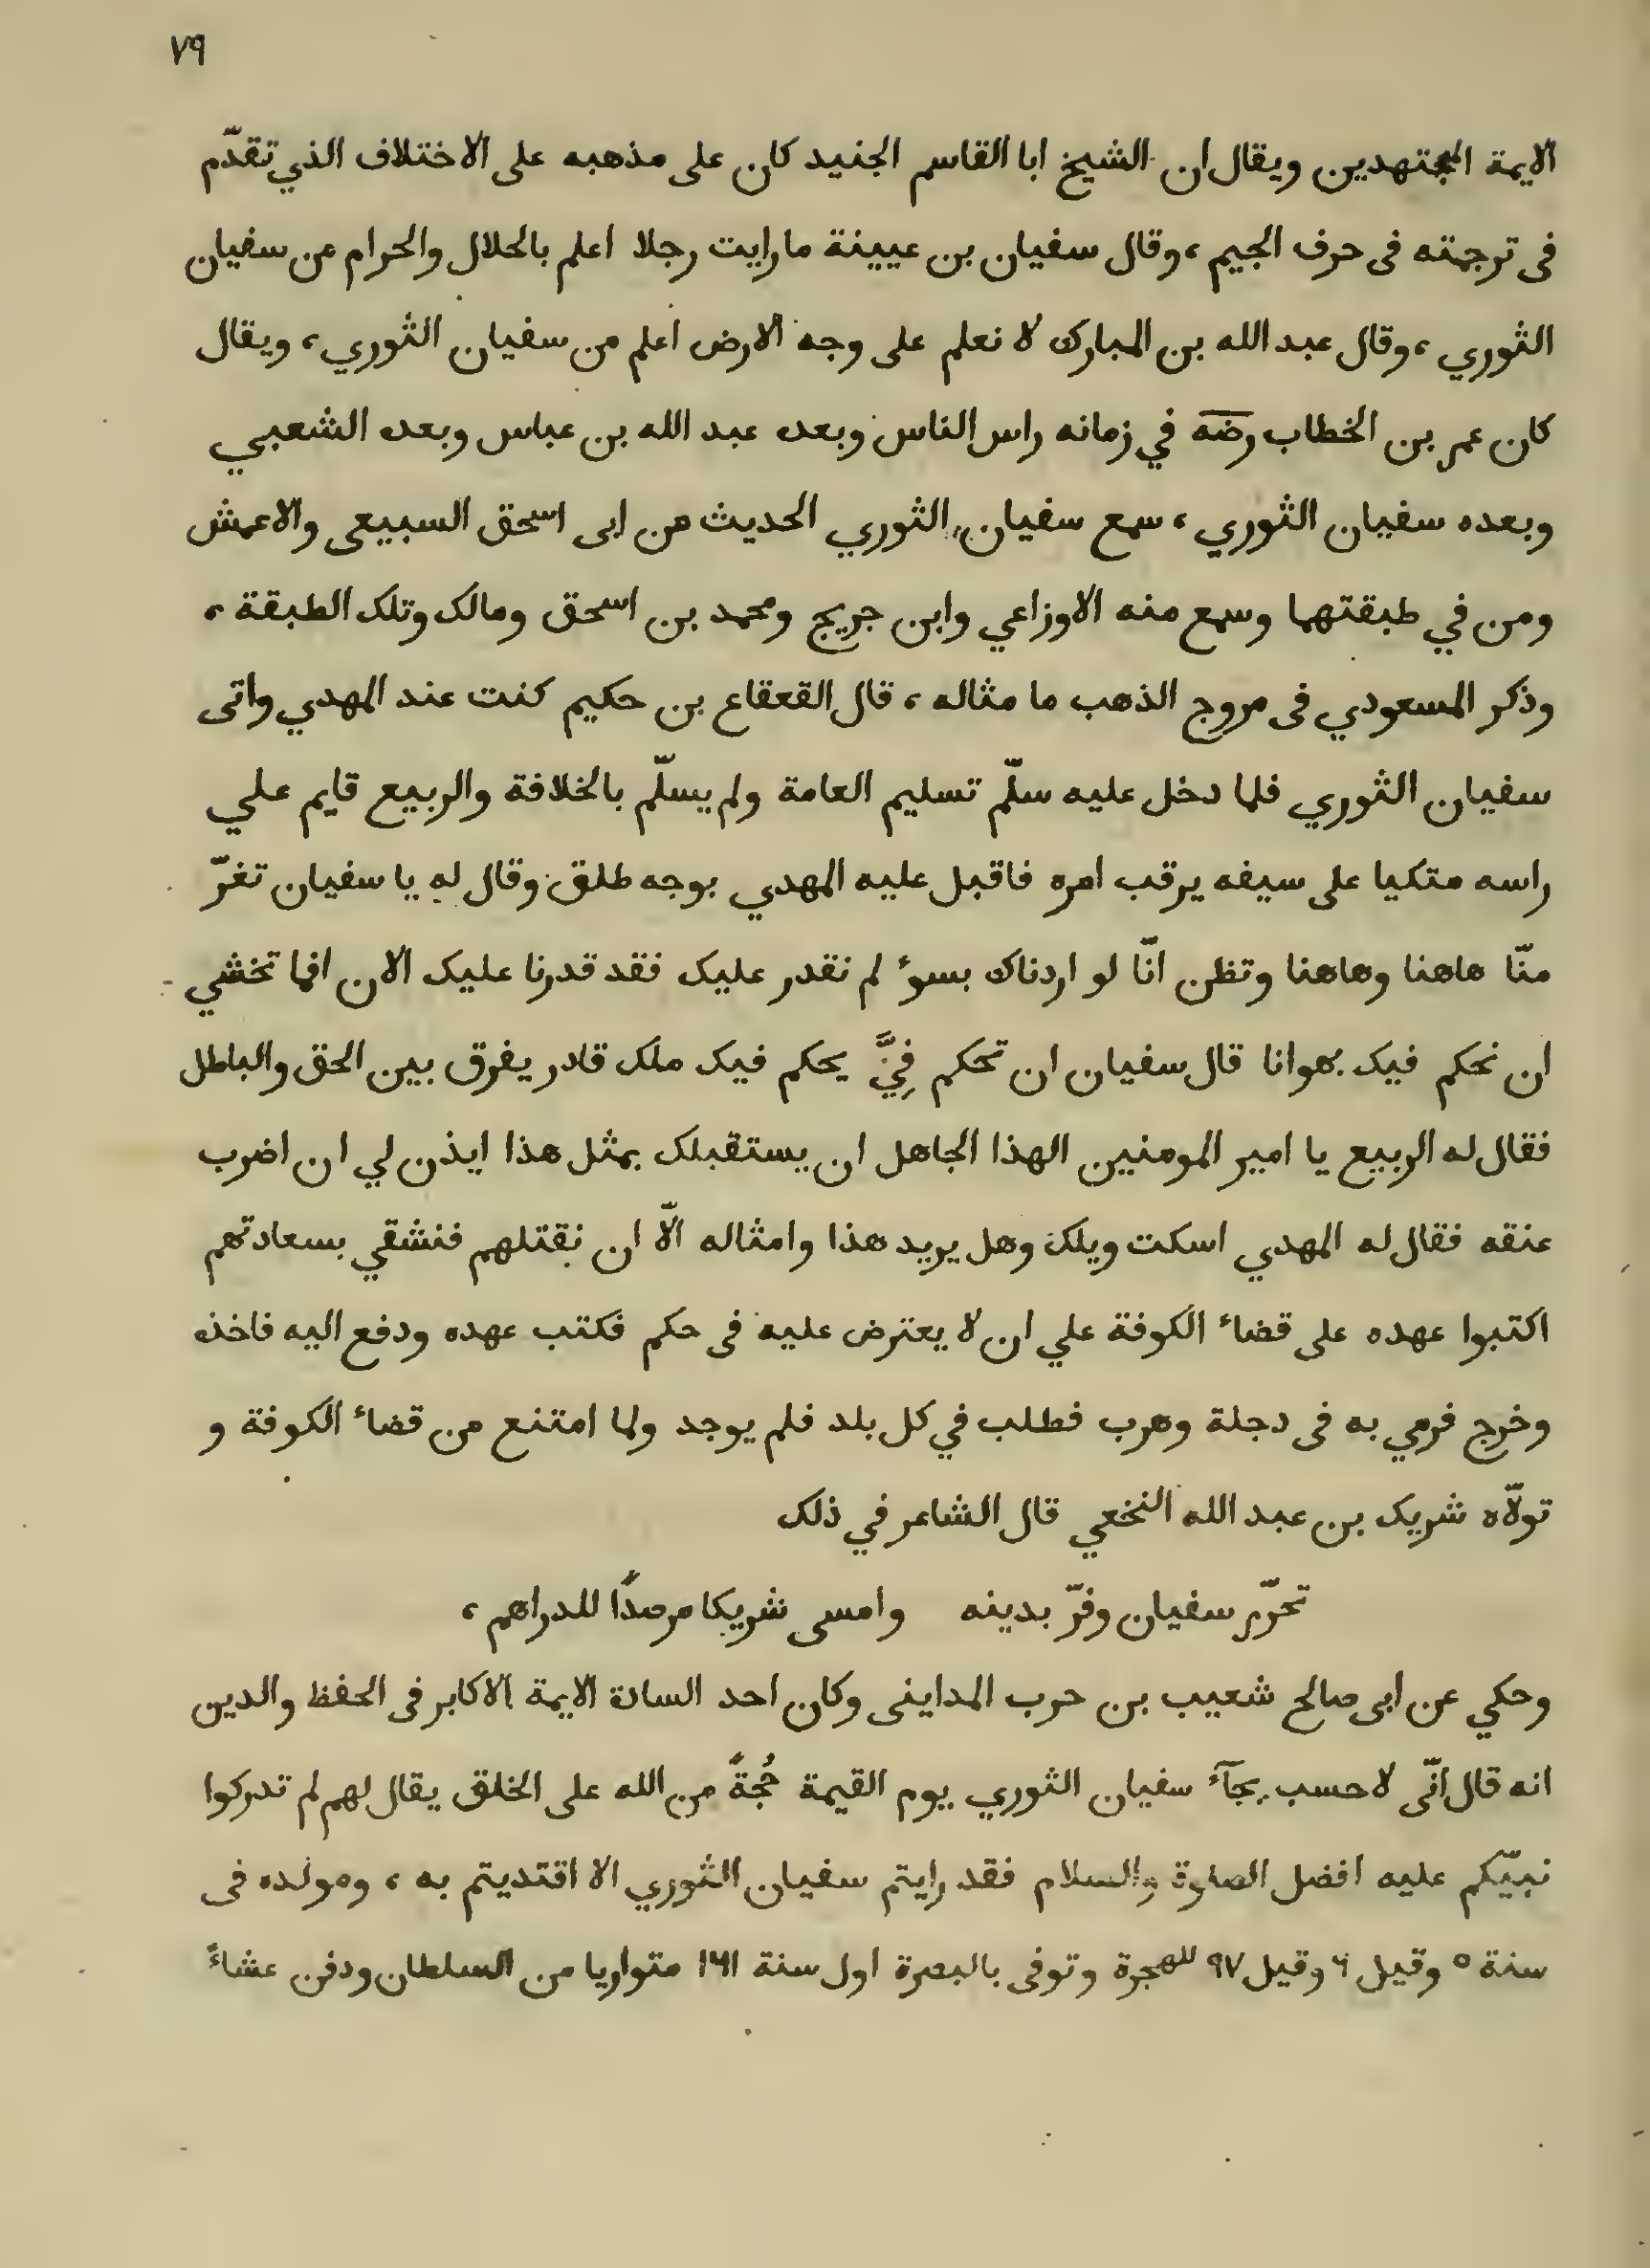 ٧٩
الايمة المجتهدين ويقال ان الشيخ ابا القاسم الجنيد كان على مذهبه على الاختلاف الذي تقدّم
فى ترجمته فى حرف الجيم ، وقال سفيان بن عيينة ما رايت رجلا اعلم بالحلال والحرام من سفيان
الثوري ، وقال عبد الله بن المبارك لا نعلم على وجه الارض اعلم من سفيان الثوري ، ويقال
كان عمر بن الخطاب رضه في زمانه راس الناس وبعده عبد الله بن عباس وبعده الشعبي
وبعده سفيان الثوري ، سمع سفيان الثوري الحديث من ابى اسحق السبيعى والاعمش
ومن في طبقتهما وسمع منه الاوزاعي وابن جريج ومحمد بن اسحق ومالك وتلك الطبقة ،
وذكر المسعودي فى مروج الذهب ما مثاله ، قال القعقاع بن حكيم كنت عند المهدي واتى
سفيان الثوري فلما دخل عليه سلّم تسليم العامة ولم يسلّم بالخلافة والربيع قايم علي
راسه متكيا على سيفه يرقب امره فاقبل عليه المهدي بوجه طلق وقال له يا سفيان تغرّ
منّا هاهنا وهاهنا وتظن انّا لو اردناك بسوء لم نقدر عليك فقد قدرنا عليك الان افما تخشي
ان نحكم فيك بهوانا قال سفيان ان تحكم فِيَّ يحكم فيك ملك قادر يفرق بين الحق والباطل
فقال له الربيع يا امير المومنين الهذا الجاهل ان يستقبلك بمثل هذا ايذن لي ان اضرب
عنقه فقال له المهدي اسكت ويلك وهل يريد هذا وامثاله الّا ان نقتلهم فنشقي بسعادتهم
اكتبوا عهده على قضاء الكوفة علي ان لا يعترض عليه فى حكم فكتب عهده ودفع اليه فاخذه
وخرج فرمي به فى دجلة وهرب فطلب في كل بلد فلم يوجد ولما امتنع من قضاء الكوفة و
تولّاه شريك بن عبد الله النخعي قال الشاعر في ذلك
تحرّر سفيان وفرّ بدينه وامسى شريكا مرصدًا للدراهم ،
وحكي عن ابى صالح شعيب بن حرب المداينى وكان احد السادة الايمة الاكابر فى الحفظ والدين
انه قال انّى لاحسب بجآء سفيان الثوري يوم القيمة حُجةً من الله على الخلق يقال لهم لم تدركوا
نبيّكم عليه افضل الصلوة والسلام فقد رايتم سفيان الثوري الا اقتديتم به ، ومولده فى
سنة ٥ وقيل ٦ وقيل ٩٧ للهجرة وتوفى بالبصرة اول سنة ١٦١ متواريا من السلطان ودفن عشاءً